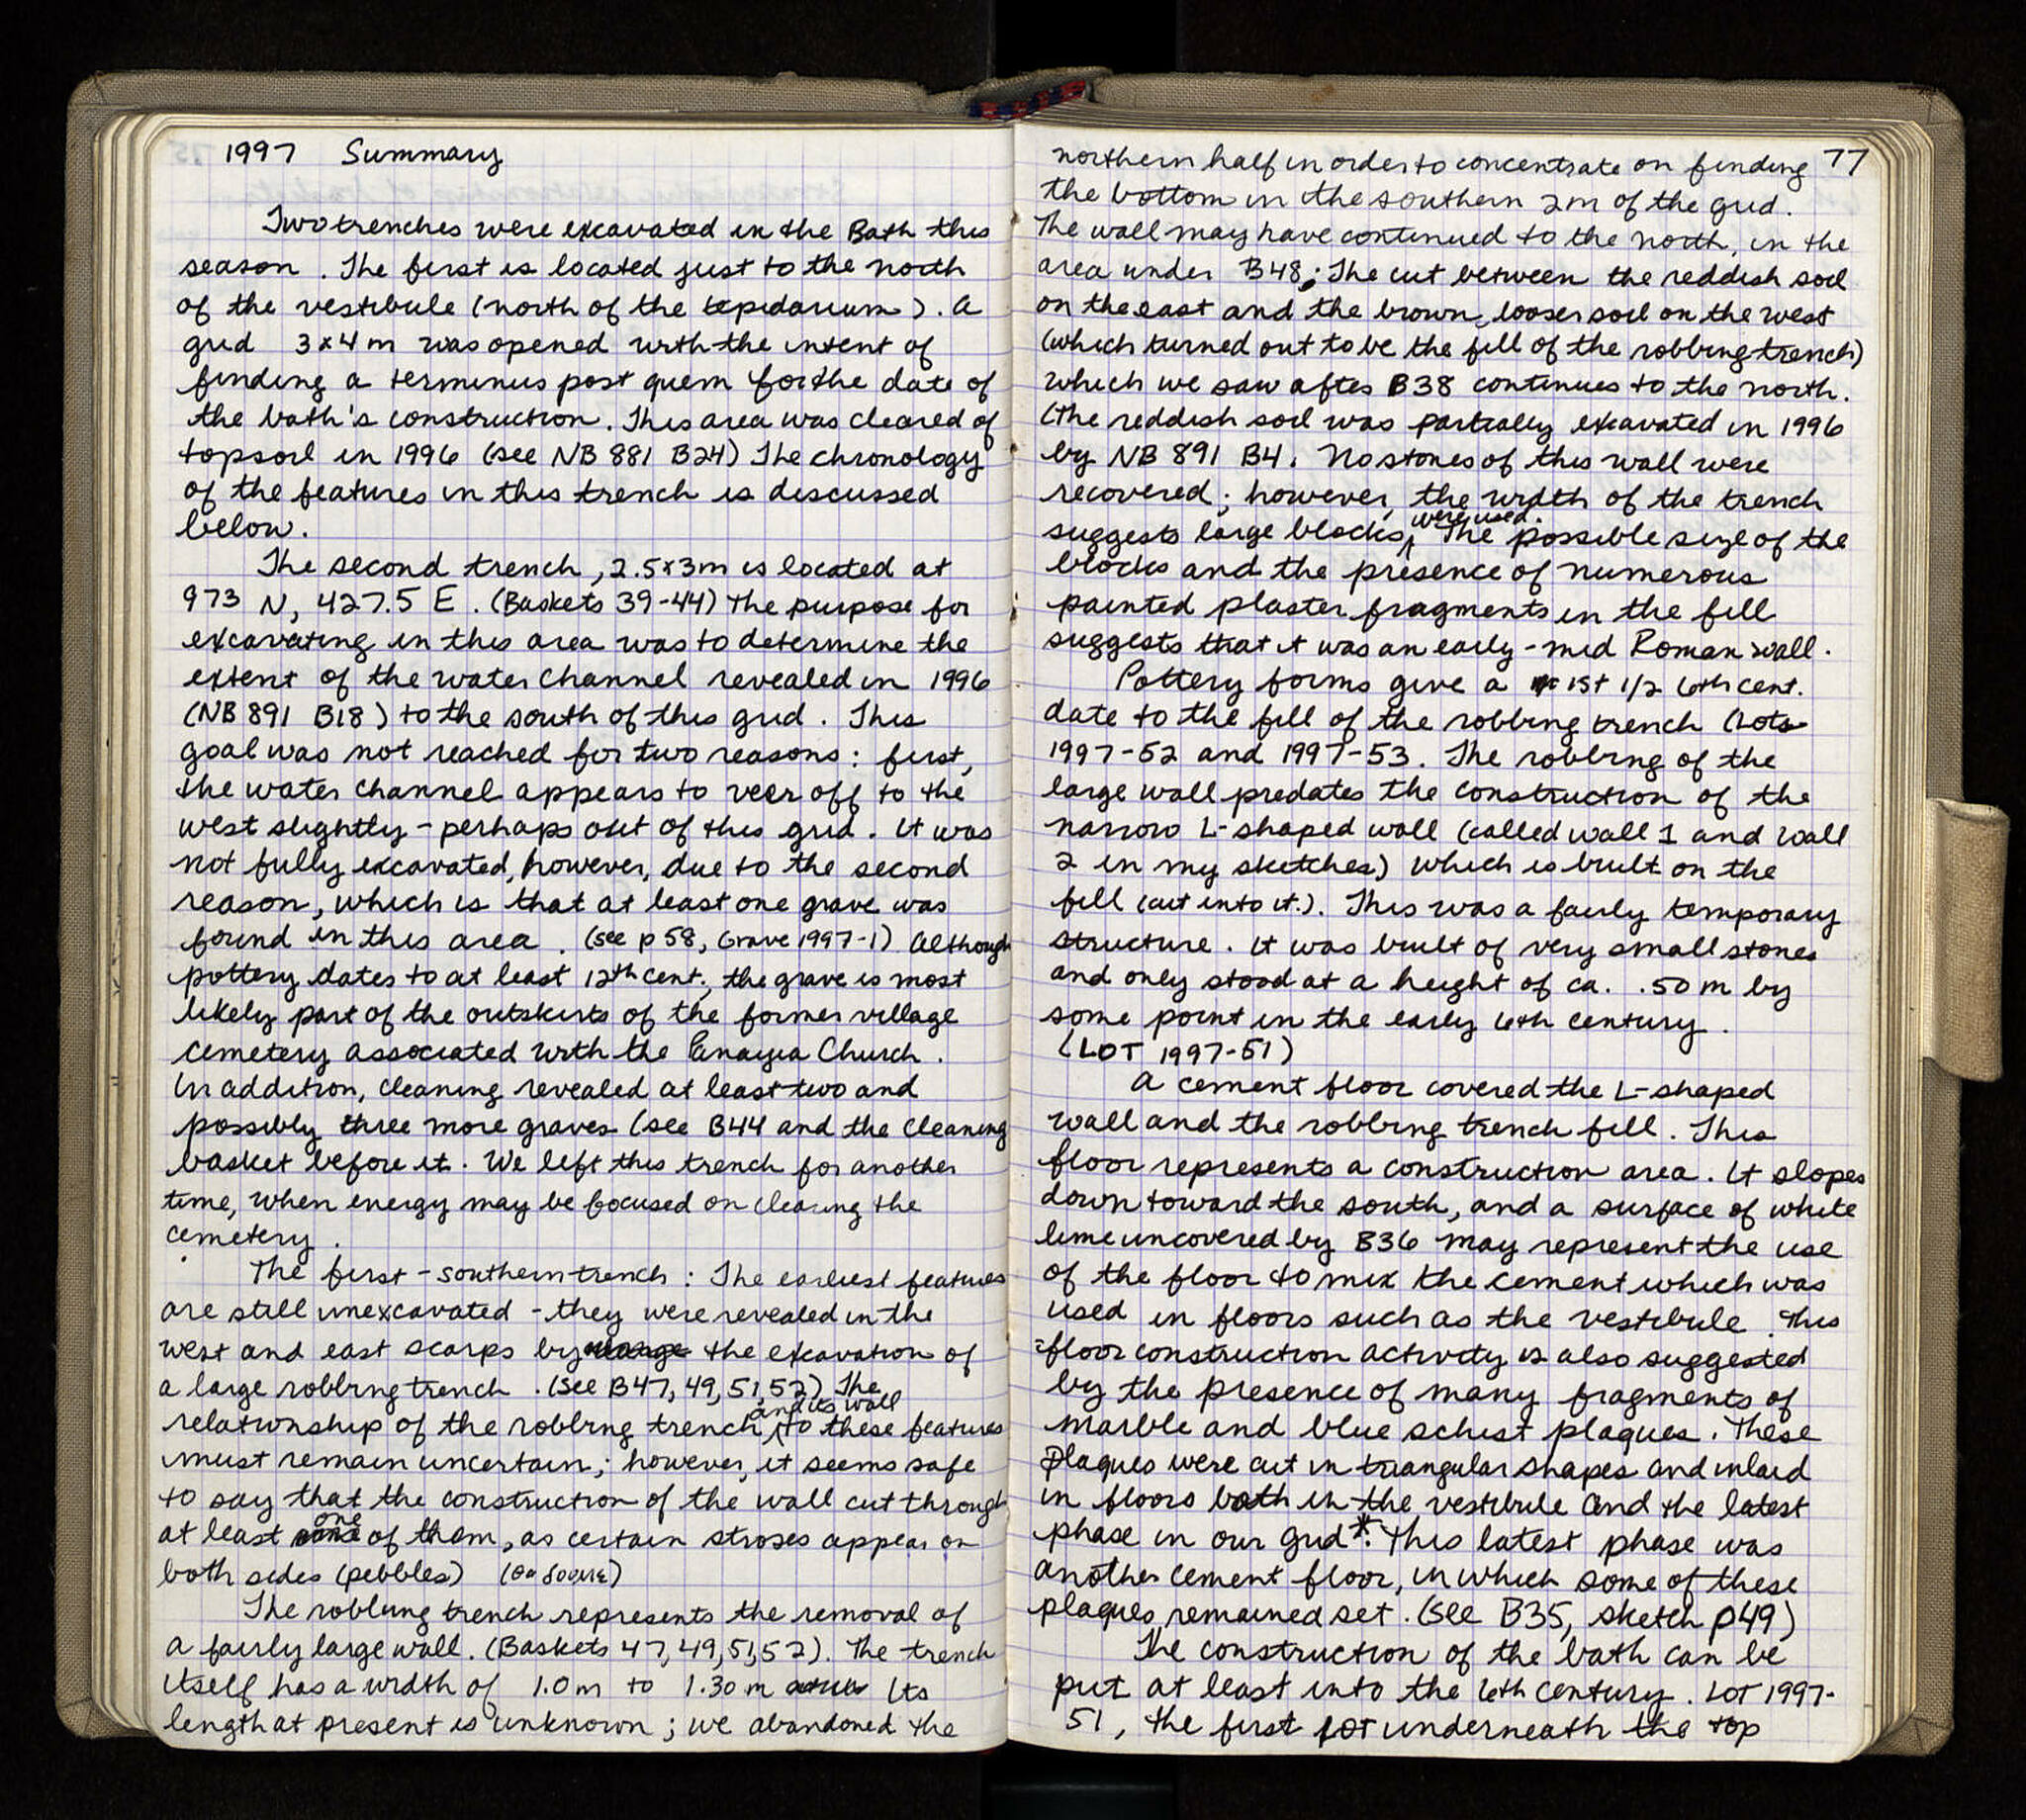 1997 Summary
Two trenches were excavated in the Bath this
season. The first is located just to the north
of the vestibule (north of the tepidarium). A
grid 3x4 m was opened with the intent of
finding a terminus post quem for the date of
the bath's construction. This area was cleared of
topsoil in 1996 (see NB 881 B24) The chronology
of the features in this trench is discussed
below.
The second trench, 2.5x3m is located at
973 N, 427.5 E. (Baskets 39-44) The purpose for
excavating in this area was to determine the
extent of the water channel revealed in 1996
(NB 891 B18) to the south of this grid. This
goal was not reached for two reasons: first,
the water channel appears to veer off to the
west slightly - perhaps out of this grid. It was
not fully excavated, however, due to the second
reason, which is that at least one grave was
found in this area. (see p 58, Grave 1997-1) Although
pottery dates to at least 12th cent., the grave is most
likely part of the outskirts of the former village
cemetery associated with the Panayia Church.
In addition, cleaning revealed at least two and
possibly three more graves (see B44 and the cleaning
basket before it. We left this trench for another
time, when energy may be focused on clearing the
cemetery.
The first - southern trench: The earliest features
are still unexcavated - they were revealed in the
west and east scarps by the excavation of
a large robbing trench. (See B47, 49, 51, 52) The
relationship of the robbing trench and its wall to these features
must remain uncertain; however, it seems safe
to say that the construction of the wall cut through
at least one of them, as certain stroses appear on
both sides (pebbles)
The robbing trench represents the removal of
a fairly large wall. (Baskets 47, 49, 51, 52). The trench
itself has a width of 1.0m to 1.30 m Its
length at present is unknown; we abandoned the
77
northern half in order to concentrate on finding
the bottom in the southern 2m of the grid.
The wall may have continued to the north, in the
area under B48; The cut between the reddish soil
on the east and the brown, looser soil on the west
(which turned out to be the fill of the robbing trench)
which we saw after B38 continues to the north.
(The reddish soil was partially excavated in 1996
by NB 891 B4. No stones of this wall were
recovered; however, the width of the trench
suggests large blocks were used. The possible size of the
blocks and the presence of numerous
painted plaster fragments in the fill
suggests that it was an early-mid Roman wall.
Pottery forms give a 1st 1/2 6th cent.
date to the fill of the robbing trench (Lots
1997-52 and 1997-53. The robbing of the
large wall predates the construction of the
narrow L-shaped wall (called wall 1 and wall
2 in my sketches) which is built on the
fill (cut into it.). This was a fairly temporary
structure. It was built of very small stones
and only stood at a height of ca. .50 m by
some point in the early 6th century.
(LOT 1997-51)
A cement floor covered the L-shaped
wall and the robbing trench fill. This
floor represents a construction area. It slopes
down toward the south, and a surface of white
lime uncovered by B36 may represent the use
of the floor to mix the cement which was
used in floors such as the vestibule. This
floor construction activity is also suggested
by the presence of many fragments of
marble and blue schist plaques. These
plaques were cut in triangular shapes and inlaid
in floors both in the vestibule and the latest
phase in our grid*. This latest phase was
another cement floor, in which some of these
plaques remained set. (See B35, sketch p49)
The construction of the bath can be
put at least into the 6th century. LOT 1997-
51, the first LOT underneath the top